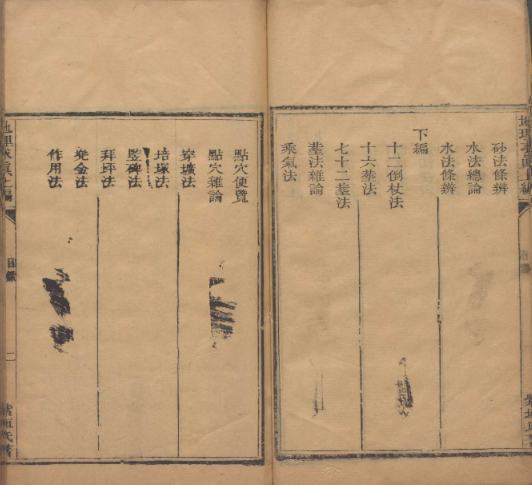 砂法條辨
水法總論
水法條辨
下編
十二倒杖法
十六葬法
七十二葬法
葬法雜論
乘氣法
點穴便覽
點穴雜論
穿壙法
培塚法
竪碑法
拜坪法
兠金法
作用法
目錄